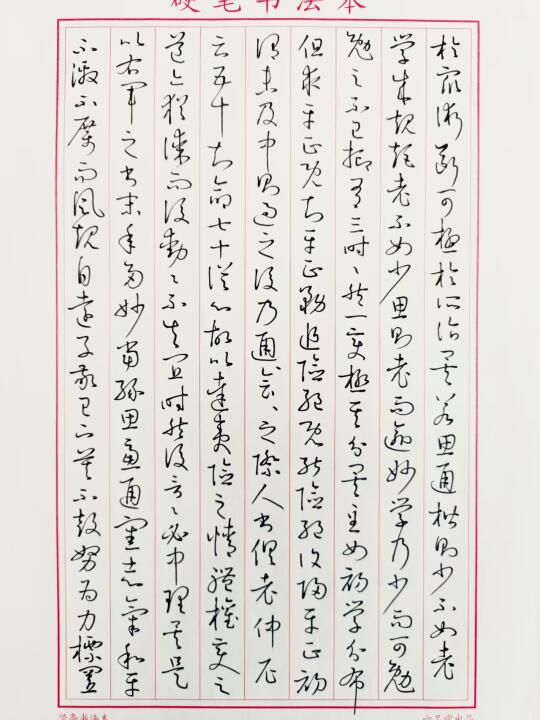 硬笔书法本
於衆術斷可極於所詣矣若思通楷則少不如老
學成規矩老不如少思則老而逾妙學乃少而可勉
勉之不已抑有三時々然一變極其分矣至如初學分布
但求平正既知平正務追險絕既能險絕復歸平正初
謂未及中則過之後乃通會々之際人書俱老仲尼
云五十知命七十從心故以達夷險之情體權變之
道亦猶謀而後動々不失宜時然後言々必中理矣是
以右軍之書末年多妙當緣思慮通審志氣和平
不激不厲而風規自遠子敬已下莫不鼓努為力標置